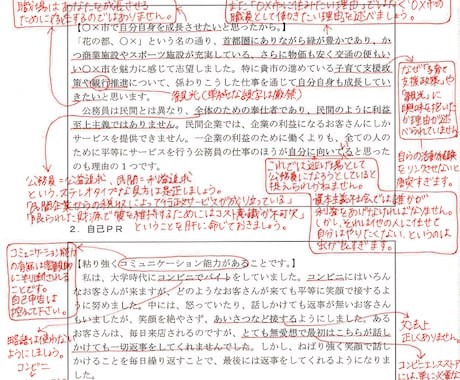 職場はあなたが成長させる
ために存在するのではありません。
また「○×市で働きたい理由」ではなく「○×市の
職員として働きたい理由」を述べましょう。
【○×市で自分自身を成長させたいと思ったから。】
「花の都、○×」という名の通り、首都圏にありながら緑が豊かであり、か
つ商業施設やスポーツ施設が充実している、さらに物価も安く交通の便もい
い○×市を魅力に感じて志望しました。特に貴市の進めている子育て支援政
策や観行推進について、係わりこうした仕事を通じて自分自身も成長してい
きたいと思います。
観光(単純な誤字は厳禁)
なぜ「子育て
支援政策」や
「観光」に
興味を抱いた
か理由が述
べられていません
自らの
をリンクさせないと
唐突すぎます。
公務員は民間とは異なり、全体のための奉仕者であり、民間のように利益
至上主義ではありません。民間企業では、企業の利益になるお客さんにしか
サービスを提供できません。一企業の利益のために働くよりも、全ての人の
ために平等にサービスを行う公務員の仕事のほうが自分に向いていると思った
のも理由の1つです。
公務員=公益追求、民間=利益追求
というステレオタイプな見方は是正しましょう。
「民間企業からの税収によって行政サービスが成り立っている」
「限られた財源で質を維持するためにはコスト意識が不可欠」
ということを肝に命じておきましょう。
これでは逃げ場として
公務員になろうとしていると
捉えられかねません。
資本主義社会では誰かが
利益をあげなければなりません。
しかし、それは他の人に任せて
自分はやりたくない、というのは
虫が良すぎます。
2．自己PR
【粘り強くコミュニケーション能力があることです。】
私は、大学時代にコンビニでバイトをしていました。コンビニにはいろん
なお客さんが来ますが、どのようなお客さんが来ても平等に笑顔で接するよ
うに努めました。中には、怒っていたり、話しかけても返事が無いお客さん
もいましたが、笑顔を絶やさず、あいさつなど接するようにしました。ある
お客さんは、毎日来店されるのですが、とても無愛想で最初はこちらが話し
かけても一切返事をしてくれませんでした。しかし、ねばり強く笑顔で話し
かけることを毎日繰り返すことで、最後には返事をしてくれるようになりま
した。
コミュニケーション能力
の有無は客観的
に判断される
ことです。
自己申告は
控えて下さい。
略語は使わない
ようにしましょう。
コンビニ
文法上
正しくありません。
コンビニエンスストア